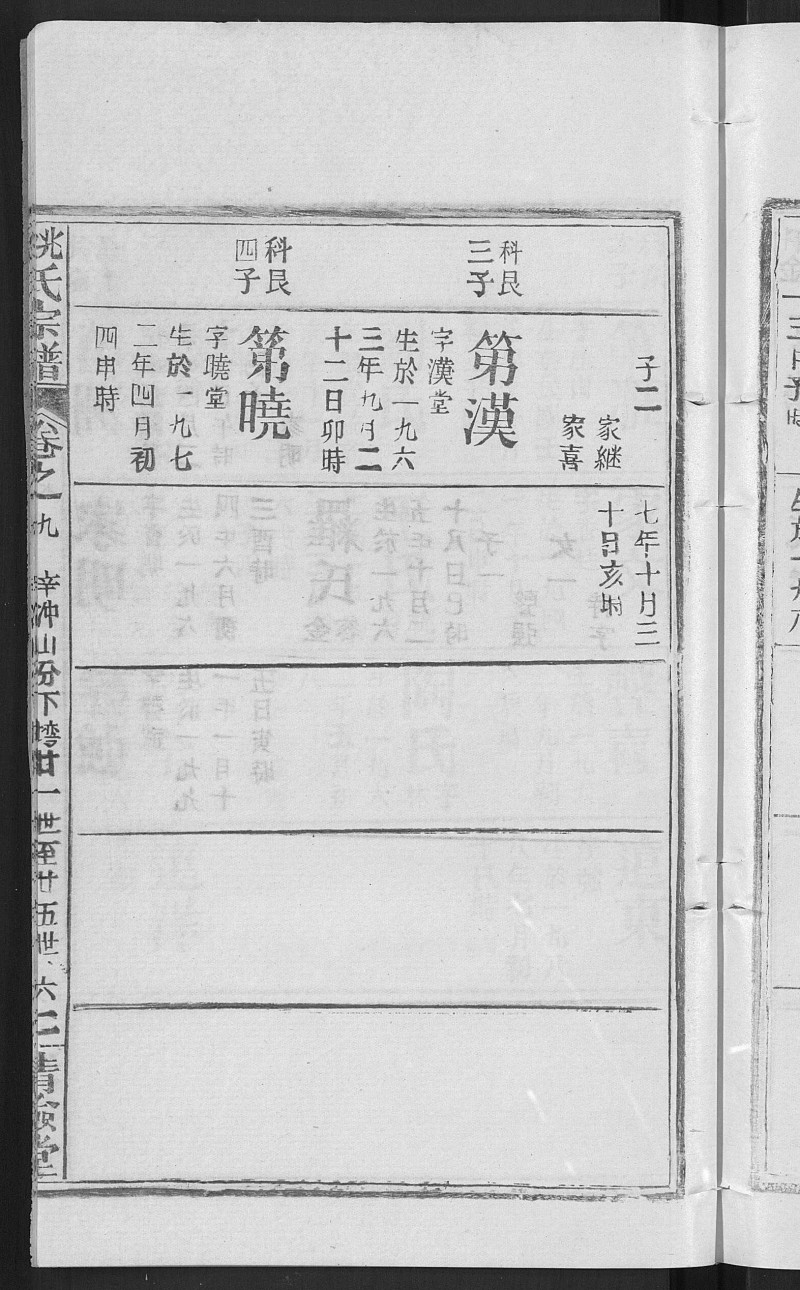 子二
家継
家喜
七年十月三
十日亥時
科艮
三子
第漢
字漢堂
生於一九六
三年九月二
十二日卯時
科艮
四子
第曉
字曉堂
生於一九七
二年四月初
四申時
姚氏宗譜
卷之一九
梓冲山分下塆廿一世至廿五世
六二
清儉堂